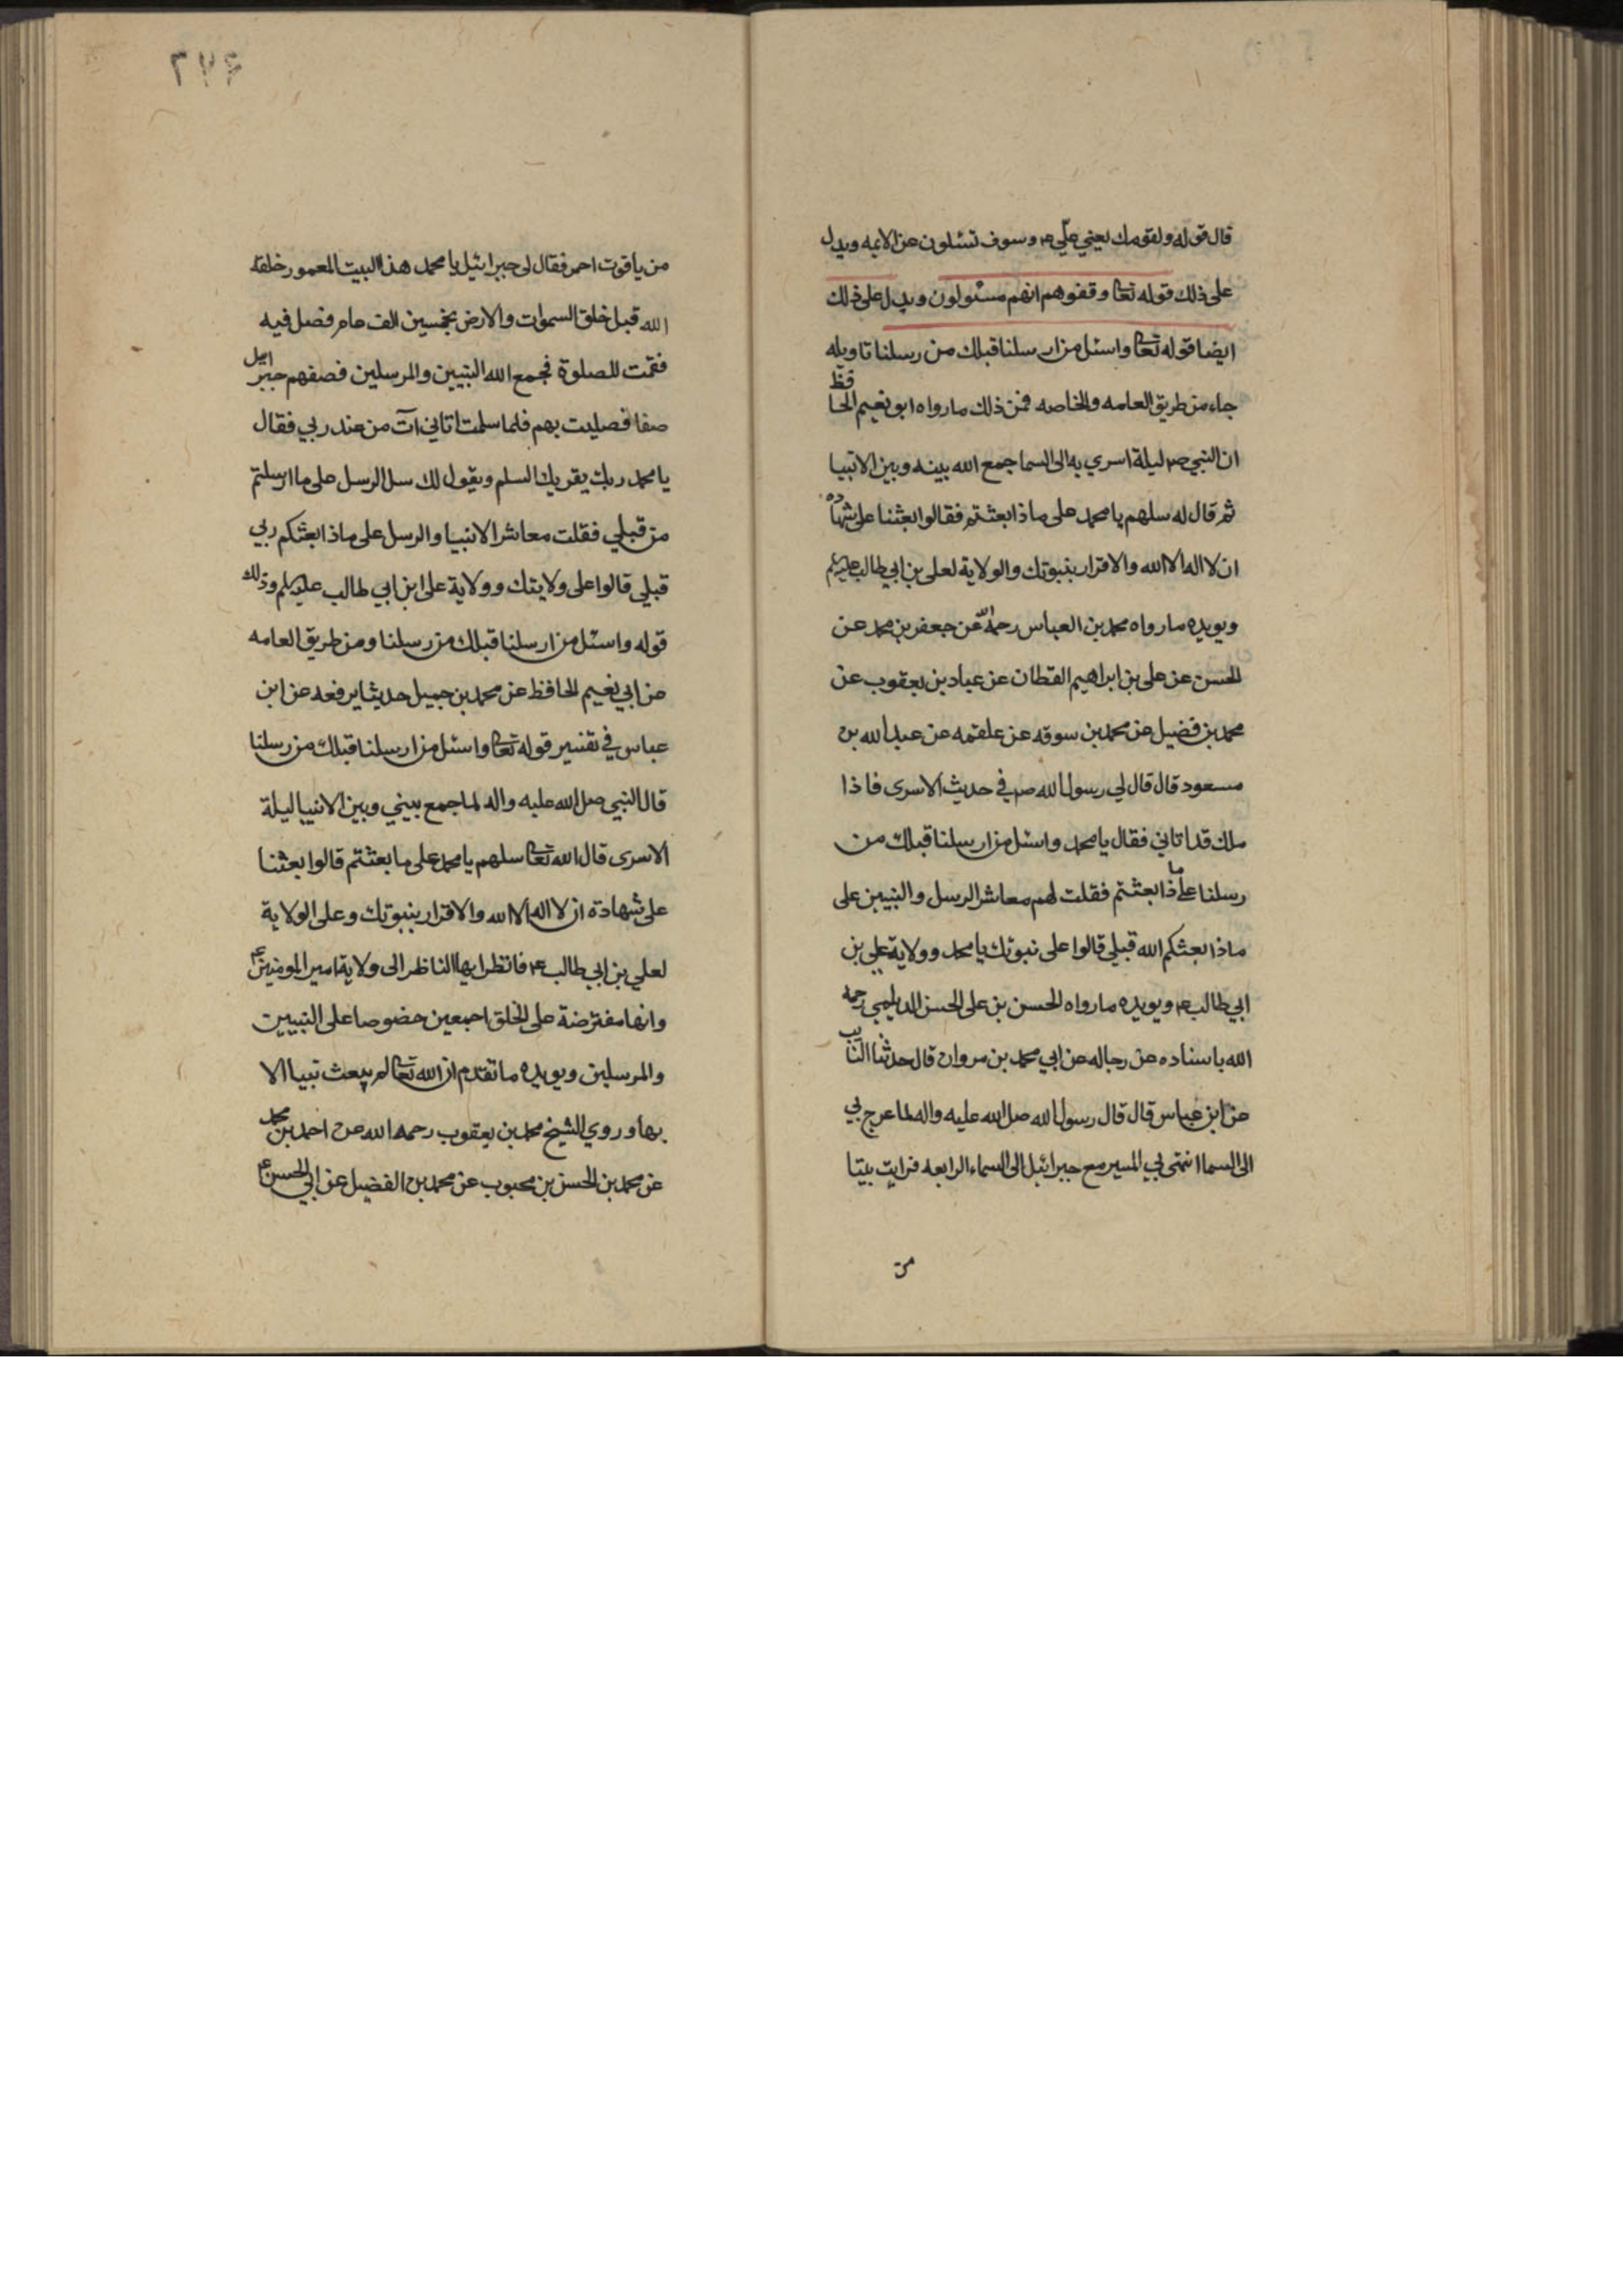 قال قوله ولقومك يعني علي ع وسوف تسئلون عن الايمه ويدل
على ذلك قوله تعا وقفوهم انهم مسئولون ويدل على ذلك
ايضا قوله تعا واسئل من ارسلنا قبلك من رسلنا تاويله
جاء من طريق العامه والخاصه فمن ذلك ما رواه ابو نعيم الحافظ
ان النبي ص ليلة اسري به الى السما جمع الله بينه وبين الانبيا
ثم قال له سلهم يا محمد على ماذا بعثتم فقالوا بعثنا على شهاده
ان لا اله الا الله والاقرار بنبوتك والولاية لعلى بن ابي طالب عليكم
ويويده ما رواه محمد بن العباس رحمه الله عن جعفر بن محمد عن
الحسن عن على بن ابراهيم القطان عن عباد بن يعقوب عن
محمد بن فضيل عن محمد بن سوقه عن علقمه عن عبد الله بن
مسعود قال قال لي رسول الله ص في حديث الاسرى فاذا
ملك قد اتاني فقال يا محمد واسئل من ارسلنا قبلك من
رسلنا على ماذا بعثتم فقلت لهم معاشر الرسل والنبيين على
ماذا بعثكم الله قبلي قالوا على نبوتك يا محمد وولاية على بن
ابي طالب ع ويويده ما رواه الحسن بن على الحسن الديلمي رحمه
الله باسناده عن رجاله عن ابي محمد بن مروان قال حدثنا النايب
عن ابن عباس قال قال رسول الله صل الله عليه واله لما عرج بي
الى السما انتهى بي المسير مع جبرائيل الى السماء الرابعه فرايت بيتا
من
٢٧٤
من ياقوت احمر فقال لي جبرائيل يا محمد هذا البيت المعمور خلقه
الله قبل خلق السموات والارض بخمسين الف عام فصل فيه
فقمت للصلوة فجمع الله النبيين والمرسلين فصفهم جبرائيل
صفا فصليت بهم فلما سلمت اتاني آت من عند ربي فقال
يا محمد ربك يقريك السلم ويقول لك سل الرسل على ما ارسلتم
من قبلي فقلت معاشر الانبيا والرسل على ماذا بعثكم ربي
قبلي قالوا على ولايتك وولاية على ابن ابي طالب عليكم وذلك
قوله واسئل من ارسلنا قبلك من رسلنا ومن طريق العامه
عن ابي نعيم الحافظ عن محمد بن جميل حديثا يرفعه عن ابن
عباس في تفسير قوله تعا واسئل من ارسلنا قبلك من رسلنا
قال النبي صل الله عليه واله لما جمع بيني وبين الانبيا ليلة
الاسرى قال الله تعا سلهم يا محمد على ما بعثتم قالوا بعثنا
على شهادة ان لا اله الا الله والاقرار بنبوتك وعلى الولاية
لعلي بن ابي طالب ع فانظر ايها الناظر الى ولاية امير المومنين ع
وانها مفترضة على الخلق اجمعين خصوصا على النبيين
والمرسلين ويويده ما تقدم ان الله تعا لم يبعث نبيا الا
بها وروي الشيخ محمد بن يعقوب رحمه الله عن احمد بن محمد
عن محمد بن الحسن بن محبوب عن محمد بن الفضيل عن ابي الحسن ع